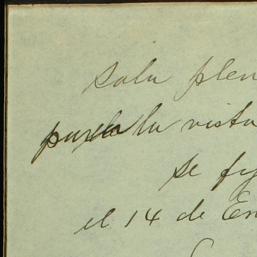 Sala plen
para la vista
se fij
el 14 de En